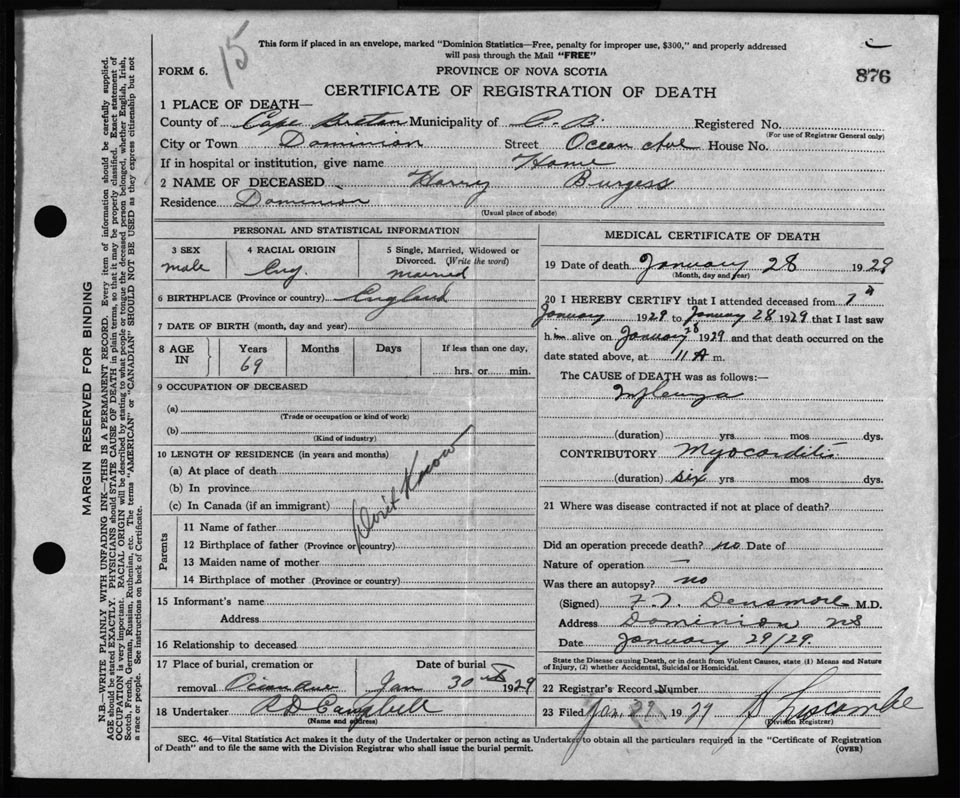 15
This form if placed in an envelope, marked "Dominion Statistics—Free, penalty for improper use, $300," and properly addressed
will pass through the Mail "FREE"
FORM 6.
PROVINCE OF NOVA SCOTIA
876
CERTIFICATE OF REGISTRATION OF DEATH
1 PLACE OF DEATH—
County of Cape Breton Municipality of C. B. Registered No.
(For use of Registrar General only)
City or Town Dominion Street Ocean Ave House No.
If in hospital or institution, give name Home
2 NAME OF DECEASED Harry Burgess
Residence Dominion
(Usual place of abode)
PERSONAL AND STATISTICAL INFORMATION
3 SEX male
4 RACIAL ORIGIN Eng.
5 Single, Married, Widowed or
Divorced. (Write the word)
married
6 BIRTHPLACE (Province or country) England
7 DATE OF BIRTH (month, day and year)
8 AGE IN Years Months Days If less than one day,
69 hrs. or min.
9 OCCUPATION OF DECEASED
(a)
(Trade or occupation or kind of work)
(b)
(Kind of industry)
10 LENGTH OF RESIDENCE (in years and months)
(a) At place of death
(b) In province
(c) In Canada (if an immigrant)
Don't Know
Parents
11 Name of father
12 Birthplace of father (Province or country)
13 Maiden name of mother
14 Birthplace of mother (Province or country)
15 Informant's name
Address
16 Relationship to deceased
17 Place of burial, cremation or Date of burial
removal Ocean Ave Jan 30th 1929
18 Undertaker R D Campbell
(Name and address)
MEDICAL CERTIFICATE OF DEATH
19 Date of death January 28 1929
(Month, day and year)
20 I HEREBY CERTIFY that I attended deceased from 7th
January 1929 to January 28 1929 that I last saw
him alive on January 28 1929 and that death occurred on the
date stated above, at 11 A m.
The CAUSE of DEATH was as follows:—
Influenza
(duration) yrs mos dys.
CONTRIBUTORY Myocarditis
(duration) six yrs mos dys.
21 Where was disease contracted if not at place of death?
Did an operation precede death? no Date of
Nature of operation —
Was there an autopsy? no
(Signed) F. T. Densmore M.D.
Address Dominion NS
Date January 29/29.
State the Disease causing Death, or in death from Violent Causes, state (1) Means and Nature
of Injury, (2) whether Accidental, Suicidal or Homicidal.
22 Registrar's Record Number
23 Filed Jan. 1929 Luscombe
(Division Registrar)
SEC. 46—Vital Statistics Act makes it the duty of the Undertaker or person acting as Undertaker to obtain all the particulars required in the "Certificate of Registration
of Death" and to file the same with the Division Registrar who shall issue the burial permit. (OVER)
MARGIN RESERVED FOR BINDING
N.B.—WRITE PLAINLY WITH UNFADING INK—THIS IS A PERMANENT RECORD. Every item of information should be carefully supplied.
AGE should be stated EXACTLY. PHYSICIANS should STATE CAUSE OF DEATH in plain terms, so that it may be properly classified. Exact statement of
OCCUPATION is very important. RACIAL ORIGIN will be described by stating to what people or tongue the deceased person belonged, whether English, Irish,
Scotch, French, German, Russian, Ruthenian, etc. The terms "AMERICAN" or "CANADIAN" SHOULD NOT BE USED as they express citizenship but not
a race or people. See instructions on back of Certificate.